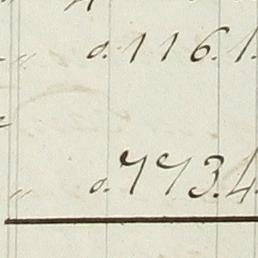 " 0.116.1.
" 0.773.4